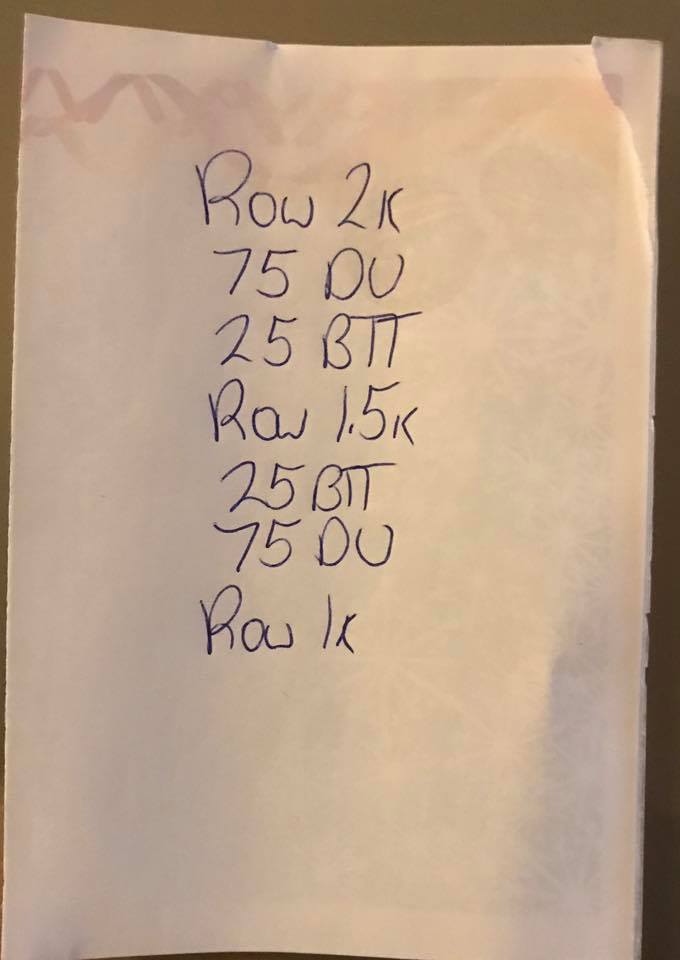 Row 2K
75 DU
25 BTT
Row 1.5K
25 BTT
75 DU
Row 1K